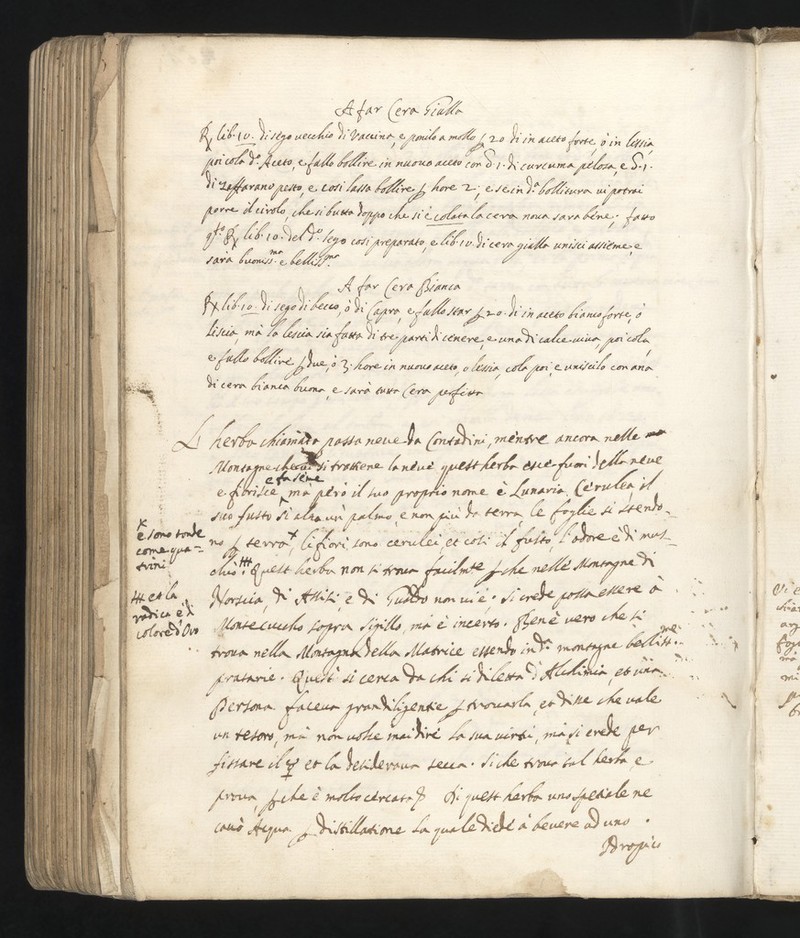 A far Cera Gialla
℞ lib. 10. di sego vecchio di Vaccina, e ponilo a mollo ꝑ 20 dì in aceto forte, ò in lessia,
poi cola d.º Aceto, e fallo bollire in nuovo aceto con ℥ 1. di curcuma pelosa, e ℥. 1.
di zaffarano pesto, e così lassa bollire ꝑ hore 2, e se in d.ª bollitura vi potrai
porre il cirolo, che si butta doppo che si è colata la cera nova sarà bene; fatto
q.to ℞ lib. 10. del d.º sego così preparato, e lib. 10. di cera gialla unisci assieme, e
sarà buoniss.ma e belliss.ma
A far Cera Bianca
℞ lib. 10. di sego di becco, ò di Capra, e fallo star ꝑ 20. dì in aceto bianco forte, ò
liscia, mà la lescia sia fatta di tre parti di cenere, e una di calce viva, poi cola,
e fallo bollire ꝑ due, ò 3. hore in nuovo aceto, o lessia, cola poi, e uniscilo con ana
di cera bianca buona, e sarà tutta Cera perfetta
L' herba chiamata passa neve da Contadini, mentre ancora nelle
Montagne che vi si trattiene la neve quest herba esce fuori della neve
e fa seme
e fiorisce, ma però il suo proprio nome è Lunaria Cerulea, il
suo fusto si alza un palmo, e non più da terra, le foglie si stendo-
no ꝑ terra x, li fiori sono cerulei, et così il fusto, l'odore è di mus-
chio ttt. Quest herba non si trova facilmte ꝑche nelle Montagne di
Norscia, di Assisi, e di Gubbio non vi è. Si crede possa essere à
Monte cuccho sopra Sigillo, mà è incerto. Ben è vero che si
trova nella Montagna della Matrice essendo in d.ª montagna belliss.me
pratarie. Questa si cerca da chi si diletta d'Alchimia, et una
Persona faceva gran diligentie ꝑ trovarla, et disse che vale
un tesoro, mà non volse mai dire la sua virtù, mà si crede per
fissare il ☿ et la desiderava secca. Si che trova tal herba, e
prova, ꝑche è molto cercata. Di quest herba uno spetiale ne
cavò Acqua ꝑ distillatione la quale diede à bevere ad uno
Idropico
x
e sono tonde
come qua-
trini
ttt et la
radica è di
colore d'Ovo